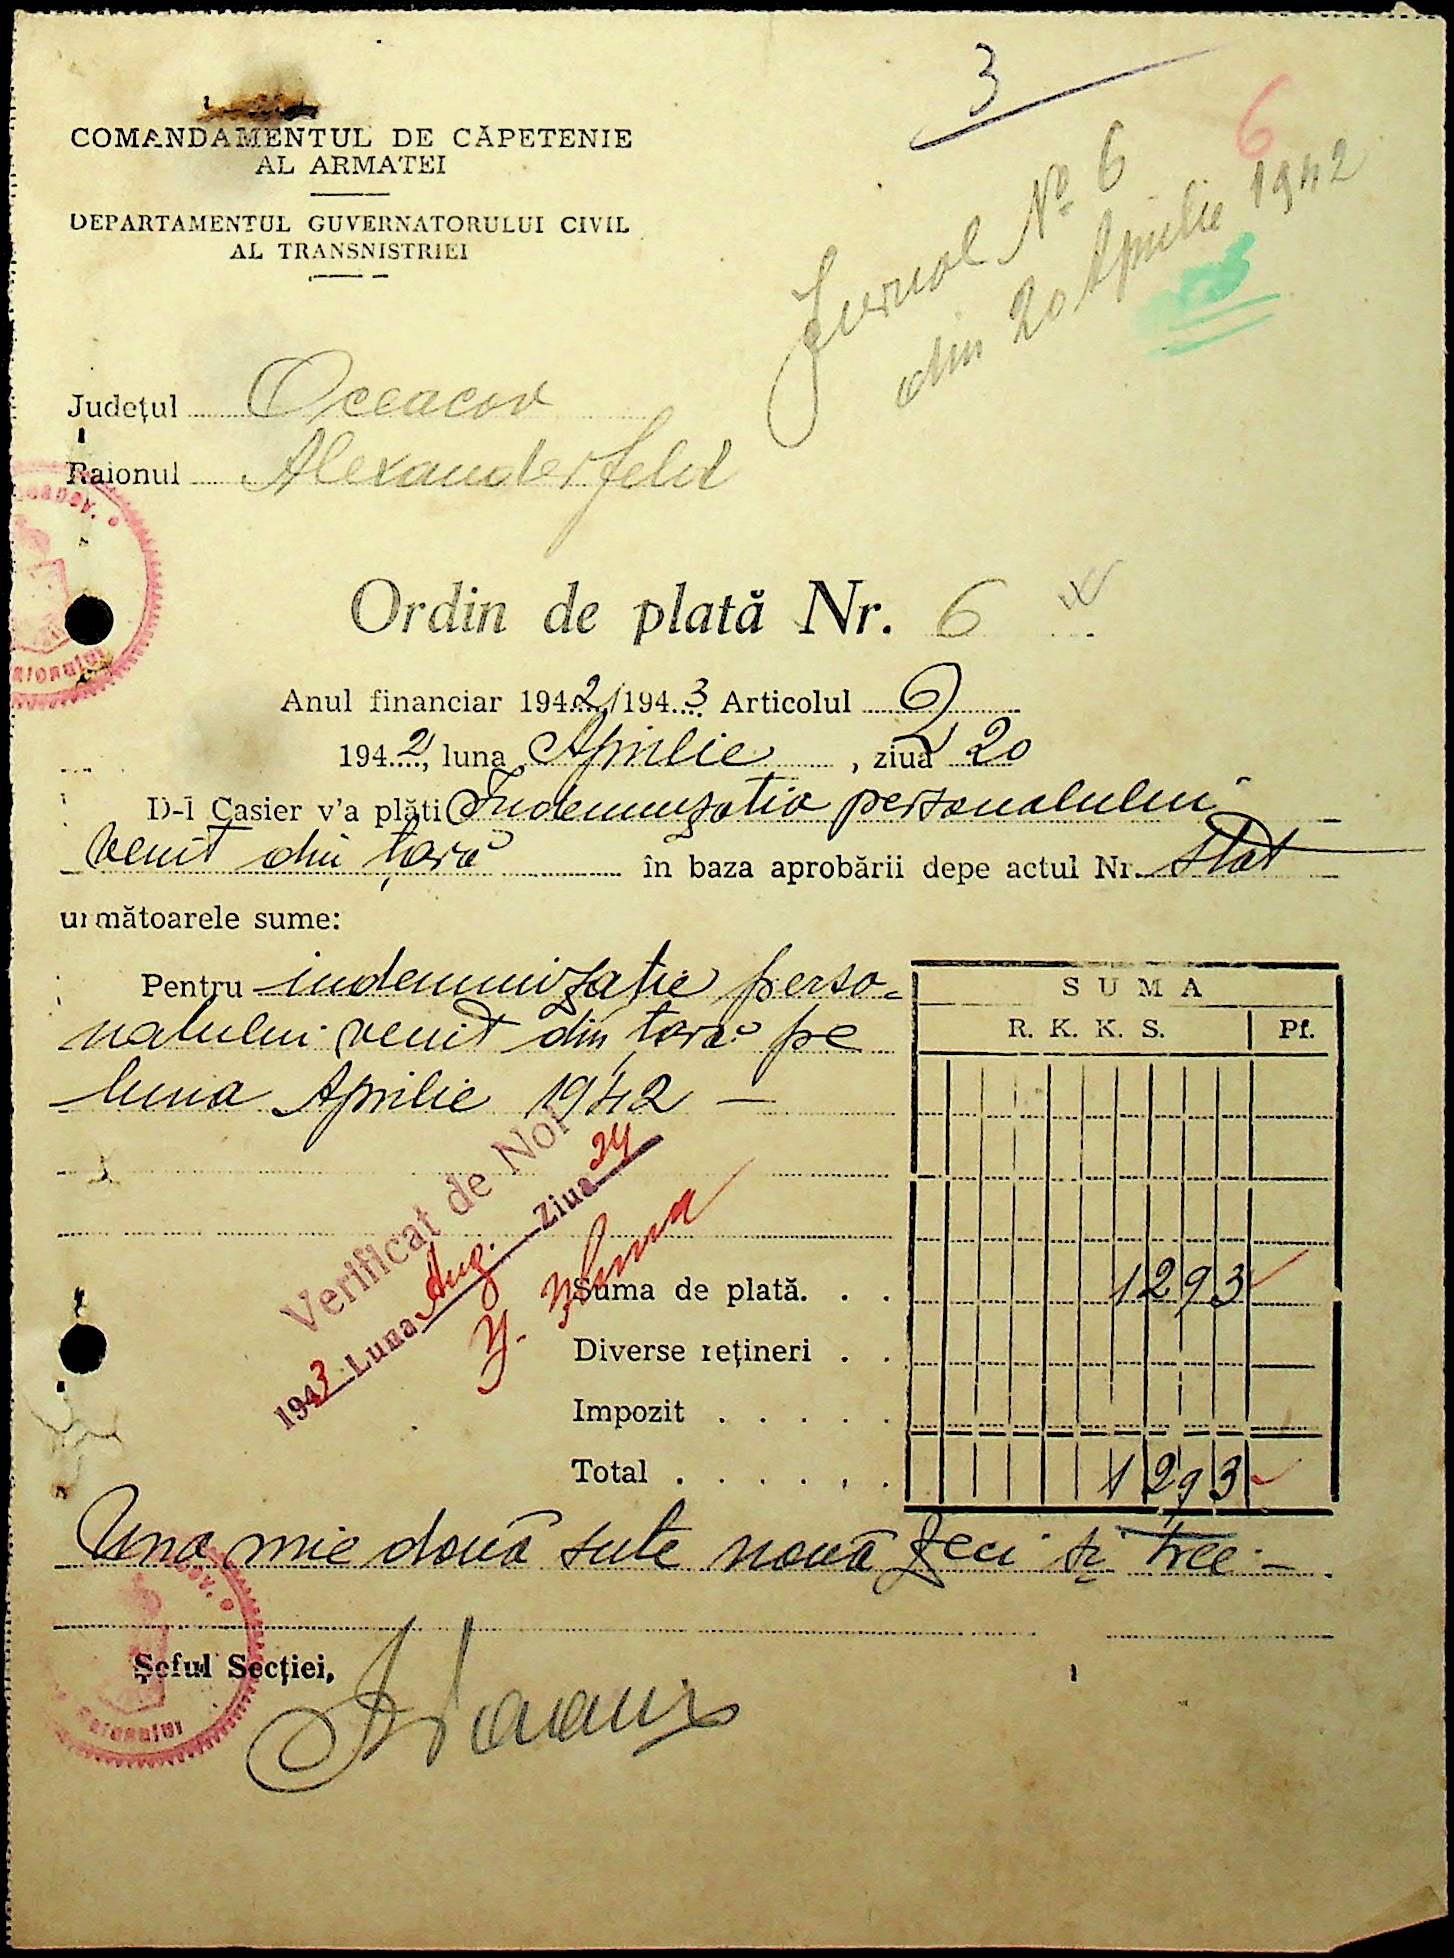 3
6
COMANDAMENTUL DE CĂPETENIE
AL ARMATEI
DEPARTAMENTUL GUVERNATORULUI CIVIL
AL TRANSNISTRIEI
Jurnal No 6
din 20 Aprilie 1942
Județul Oceacov
Raionul Alexanderfeld
Ordin de plată Nr. 6
Anul financiar 1942/1943 Articolul 2
1942, luna Aprilie, ziua 20
D-l Casier v'a plăti Indemnizatia personalului
venit din țară în baza aprobării depe actul Nr. Stat
următoarele sume:
Pentru indemnizație perso-
nalului venit din țară pe
luna Aprilie 1942 —
SUMA
R. K. K. S. Pf.
Verificat de Noi
1943 Luna Aug. Ziua 24
Suma de plată. . . 1293
Diverse rețineri . .
Impozit . . . . .
Total . . . . . . 1293
Una mie două sute nouă zeci și trei —
Șeful Secției,
Raionului